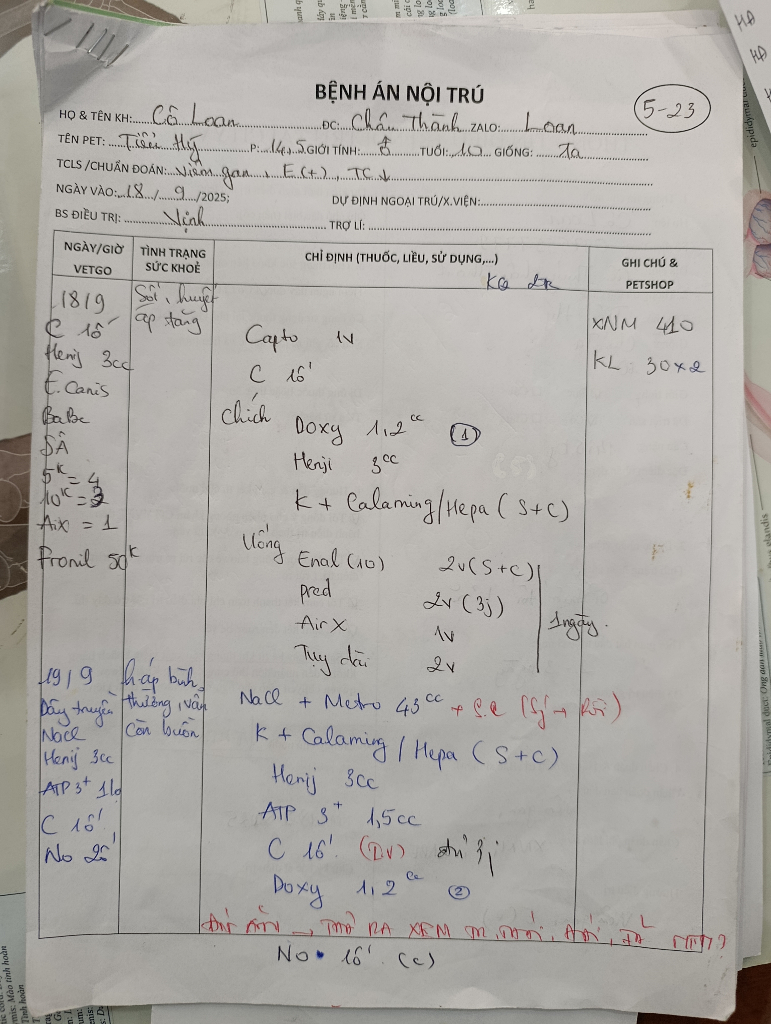 BỆNH ÁN NỘI TRÚ
5-23
HỌ & TÊN KH: Cô Loan ĐC: Châu Thành ZALO: Loan
TÊN PET: Tiểu Hỷ P: 14,5 GIỚI TÍNH: ♂ TUỔI: 10 GIỐNG: Ta
TCLS /CHUẨN ĐOÁN: Viêm gan, E(+), TC↓
NGÀY VÀO: 18 / 9 /2025; DỰ ĐỊNH NGOẠI TRÚ/X.VIỆN:
BS ĐIỀU TRỊ: Vịnh TRỢ LÍ:
NGÀY/GIỜ VETGO
TÌNH TRẠNG SỨC KHOẺ
CHỈ ĐỊNH (THUỐC, LIỀU, SỬ DỤNG,...)
GHI CHÚ & PETSHOP
18/9
C 1ô'
Henij 3cc
E. Canis
BaBe
SÂ
5K = 4
10K = 3
AiX = 1
Fronil 50K
Sốt, huyết
áp tăng
Capto 1v
C 1ô'
Chích
Doxy 1,2cc ①
Henji 3cc
K + Calaming/Hepa (S+C)
Uống
Enal (10) 2v(S+C)
pred 2v (3j)
Air X 1v
Tuy dài 2v
1ngày.
XNM 410
KL 30x2
19/9
Dây truyền
NaCl
Henij 3cc
ATP 3+ 1lo
C 1ô'
No 2ô'
h.áp bình
thường, vẫn
còn buồn
NaCl + Metro 43cc
K + Calaming / Hepa (S+C)
Henij 3cc
ATP 3+ 1,5cc
C 1ô' (DV) đủ 3j
Doxy 1,2cc ②
THỞ RA XEM
No 1ô' (c)